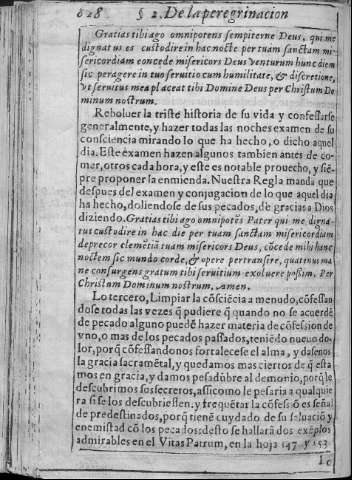 628 § 2. De la peregrinacion
Gratias tibi ago omnipotens sempiterne Deus, qui me
dignatus es custodire in hac nocte per tuam sanctam mi-
sericordiam concede misericors Deus venturum hunc diem
sic peragere in tuo seruitio cum humilitate, & discretione,
vt seruitus mea placeat tibi Domine Deus per Christum Do
minum nostrum.
Reboluer la triste historia de su vida y confessarse
generalmente, y hazer todas las noches examen de su
consciencia mirando lo que ha hecho, o dicho aquel
dia. Este examen hazen algunos tambien antes de co-
mer, otros cada hora, y este es notable prouecho, y siē-
pre proponer la enmienda. Nuestra Regla manda que
despues del examen y conjugacion de lo que aquel dia
ha hecho, doliendose de sus pecados, dè gracias a Dios
diziendo. Gratias tibi ago omnipotēs Pater qui me digna-
tus custodire in hac die per tuam sanctam misericordiam
deprecor clemētiā tuam misericors Deus, cōcede mihi hanc
noctem sic mundo corde, & opere pertransire, quatenus ma
ne consurgens gratum tibi seruitium exoluere possim. Per
Christum Dominum nostrum. Amen.
Lo tercero, Limpiar la cōsciēcia a menudo, cōfessan
dose todas las vezes q̃ pudiere q̃ quando no se acuerde
de pecado alguno puede hazer materia de cōfession de
vno, o mas de los pecados passados, teniēdo nueuo do-
lor, porq̃ cōfessandonos fortalecese el alma, y dasenos
la gracia sacramētal, y quedamos mas ciertos de q̃ esta
mos en gracia, y damos pesadūbre al demonio, porq̃ le
descubrimos sus secretos, assi como le pesaria a qualquie
ra si se los descubriessen. y frequētar la cōfessiō es señal
de predestinados, porq̃ tienē cuydado de su saluaciō, y
enemistad cō los pecados: desto se hallarā dos exēplos
admirables en el Vitas Patrum, en la hoja 147. y 153.
Lo